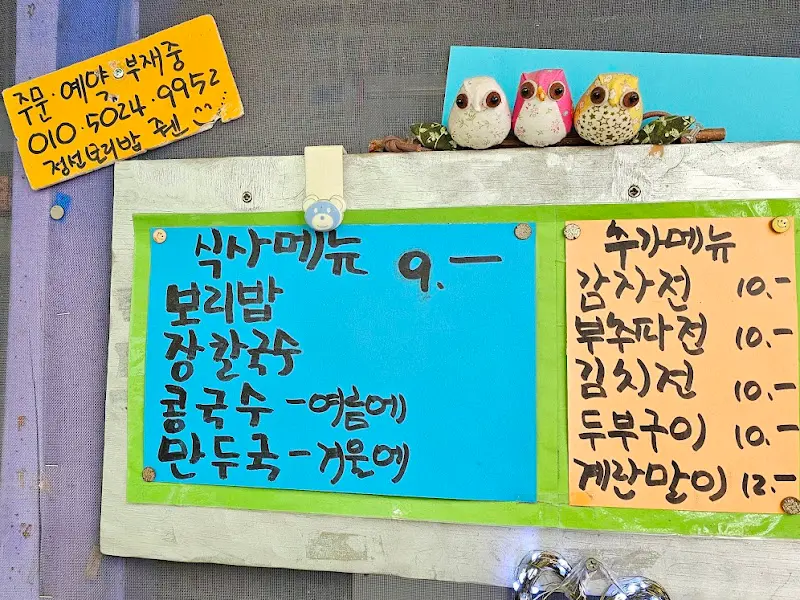 주문·예약·부재중
010·5024·9952
정선보리밥 쥔
식사메뉴 9.-
보리밥
장칼국수
콩국수 - 여름에
만두국 - 겨울에
추가메뉴
감자전 10.-
부추파전 10.-
김치전 10.-
두부구이 10.-
계란말이 12.-